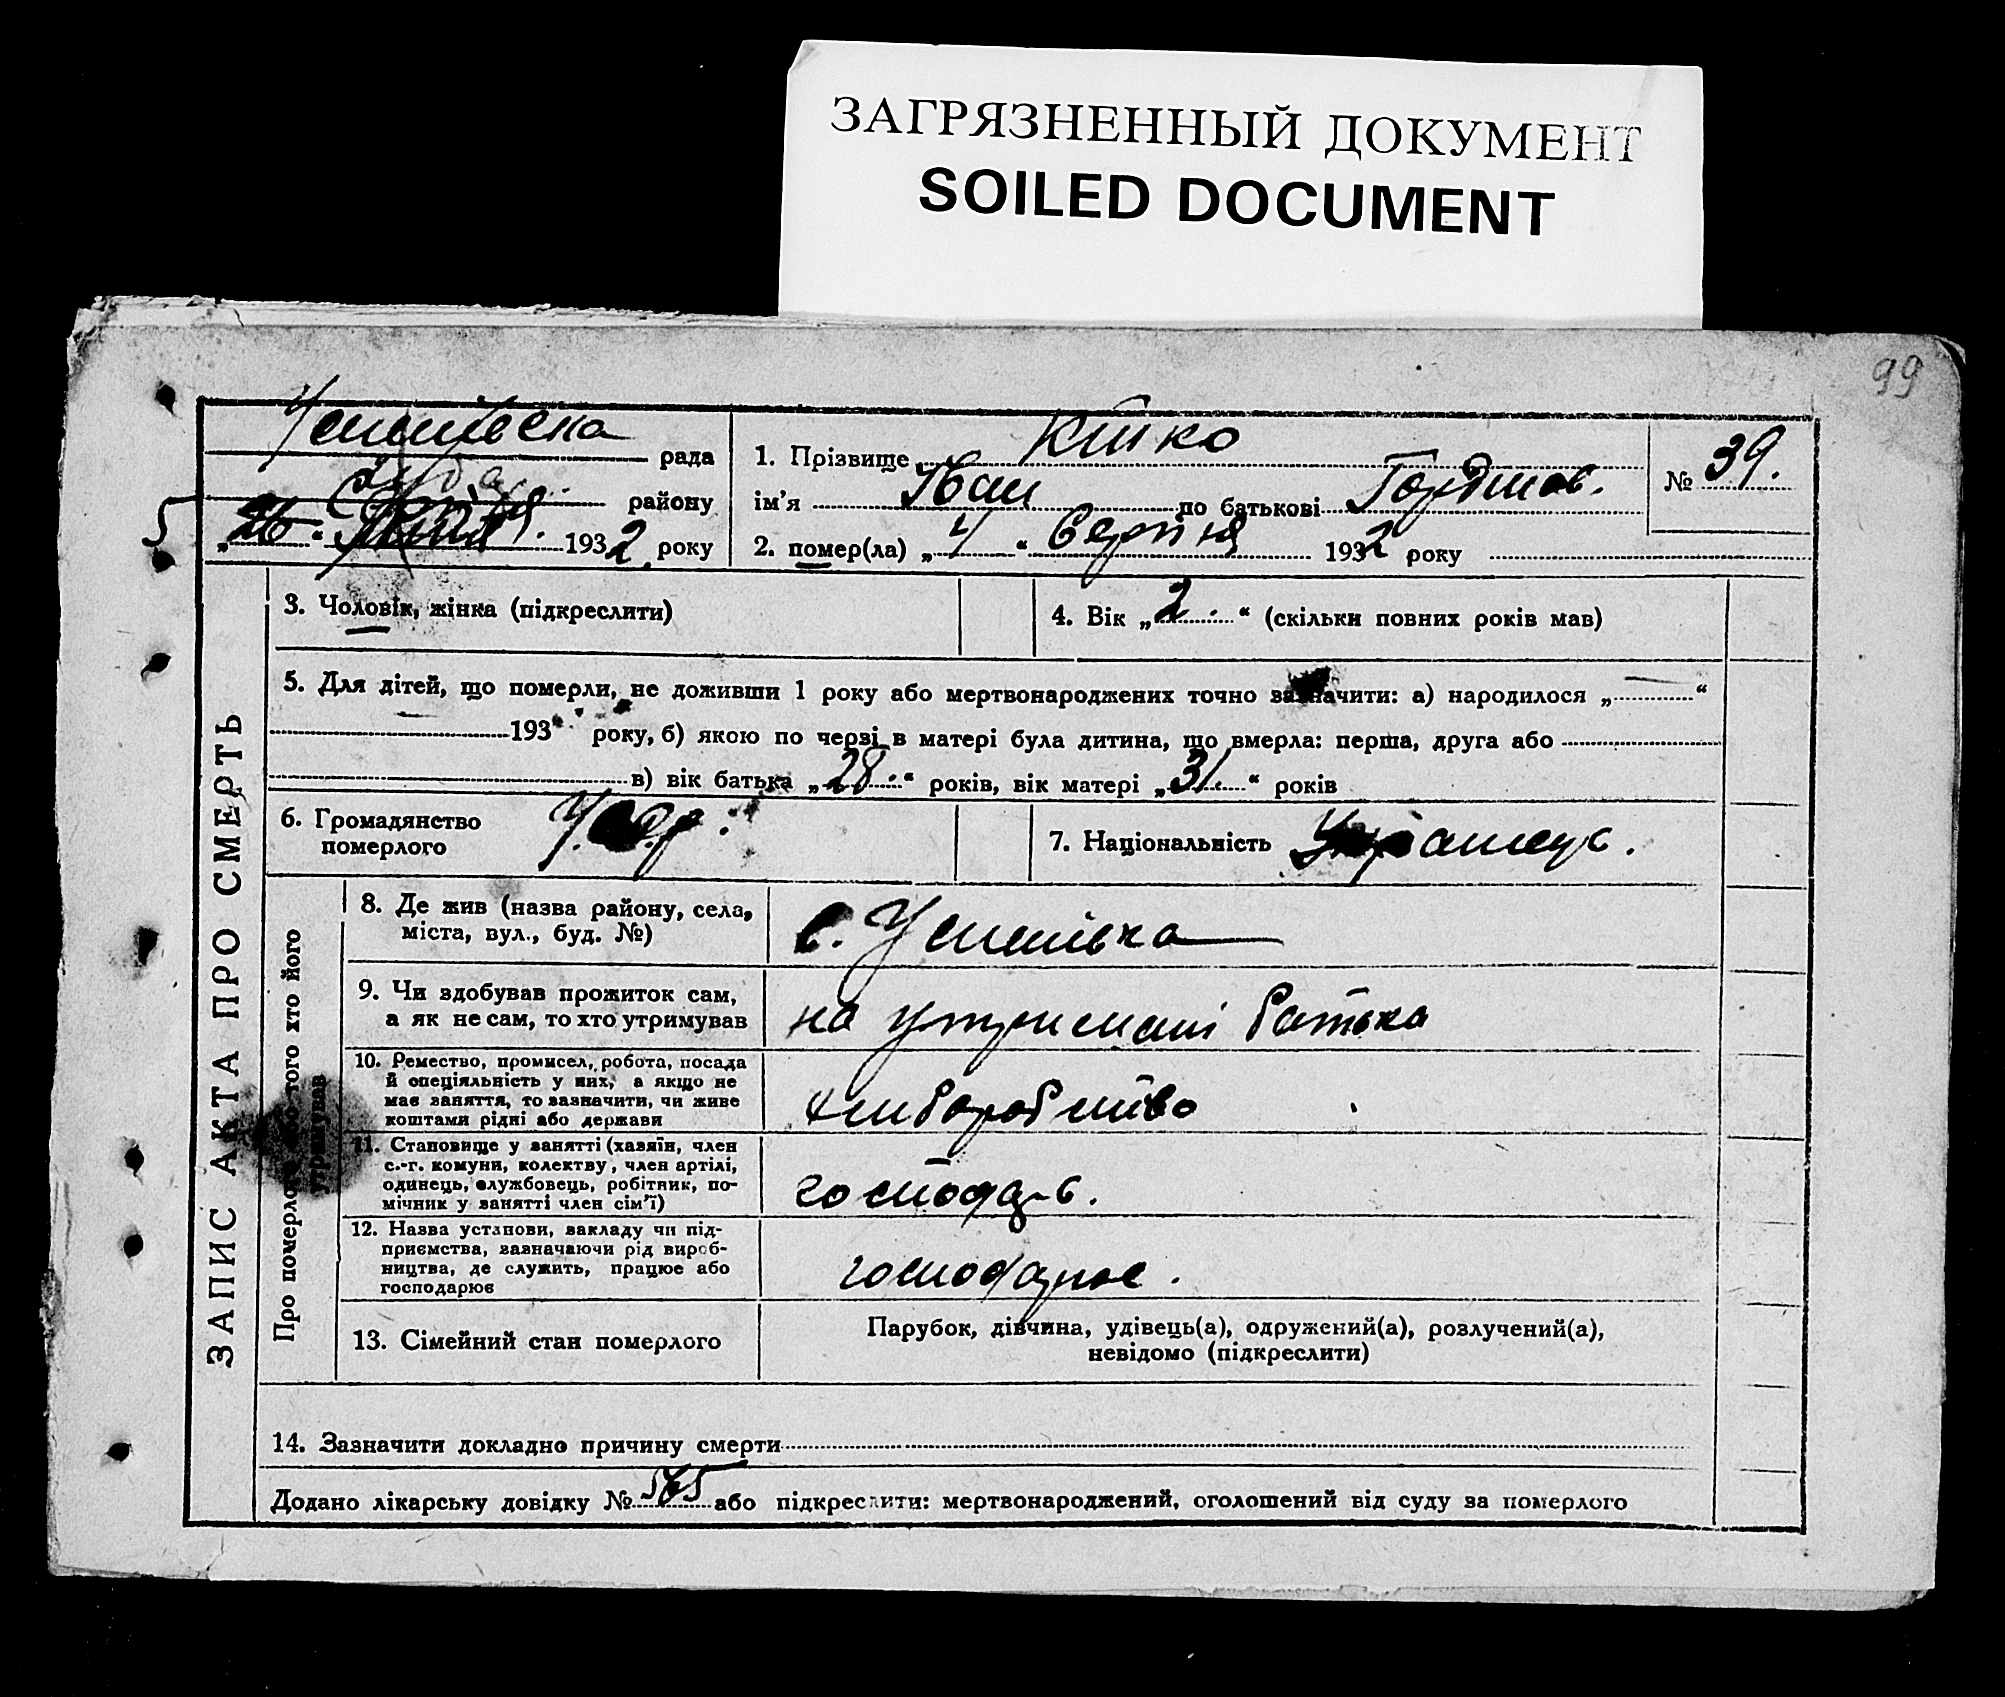 ЗАГРЯЗНЕННЫЙ ДОКУМЕНТ
SOILED DOCUMENT
99
рада
району
5 1932 року
1. Прізвище
ім'я Іван по батькові
№ 39.
2. помер(ла) „4“ Серпня 1932 року
ЗАПИС АКТА ПРО СМЕРТЬ
3. Чоловік, жінка (підкреслити)
4. Вік „2“ (скільки повних років мав)
5. Для дітей, що померли, не доживши 1 року або мертвонароджених точно зазначити: а) народилося „ “
193 року, б) якою по черзі в матері була дитина, що вмерла: перша, друга або
в) вік батька „28“ років, вік матері „31“ років
6. Громадянство
померлого
7. Національність
Про померлого або того хто його
утримував
8. Де жив (назва району, села,
міста, вул., буд. №)
с. Успенівка
9. Чи здобував прожиток сам,
а як не сам, то хто утримував
на утриманні батька
10. Ремество, промисел, робота, посада
й спеціяльність у них, а якщо не
має заняття, то зазначити, чи живе
коштами рідні або держави
хлиборобство
11. Становище у занятті (хазяїн, член
с.-г. комуни, колектву, член артілі,
одинець, службовець, робітник, по-
мічник у занятті член сім'ї)
господар.
12. Назва установи, закладу чи під-
приємства, зазначаючи рід вироб-
ництва, де служить, працює або
господарює
господарює.
13. Сімейний стан померлого
Парубок, дівчина, удівець(а), одружений(а), розлучений(а),
невідомо (підкреслити)
14. Зазначити докладно причину смерти
Додано лікарську довідку № 565 або підкреслити: мертвонароджений, оголошений від суду за померлого